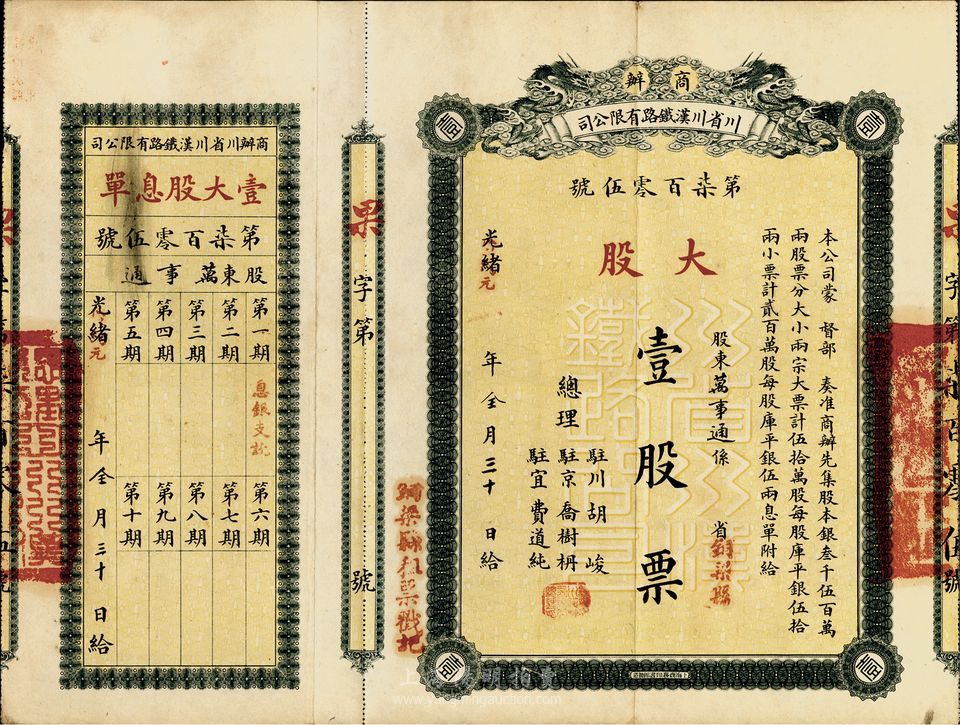 商辦
川省川漢鐵路有限公司
第柒百零伍號
大股
本公司蒙 督部 奏准商辦先集股本銀叁千伍百萬
兩股票分大小兩宗大票計伍拾萬股每股庫平銀伍拾
兩小票計貳百萬股每股庫平銀伍兩息單附給
股東萬事通係 省銅梁縣
壹股票
總理
駐川胡峻
駐京喬樹枬
駐宜費道純
光緒元年全月三十日給
銅梁縣租票戳記
字第 號
商辦川省川漢鐵路有限公司
壹大股息單
第柒百零伍號
股東萬事通
第一期
第二期
第三期
第四期
第五期
息銀支訖
第六期
第七期
第八期
第九期
第十期
光緒元年全月三十日給
www.yangmingauction.com